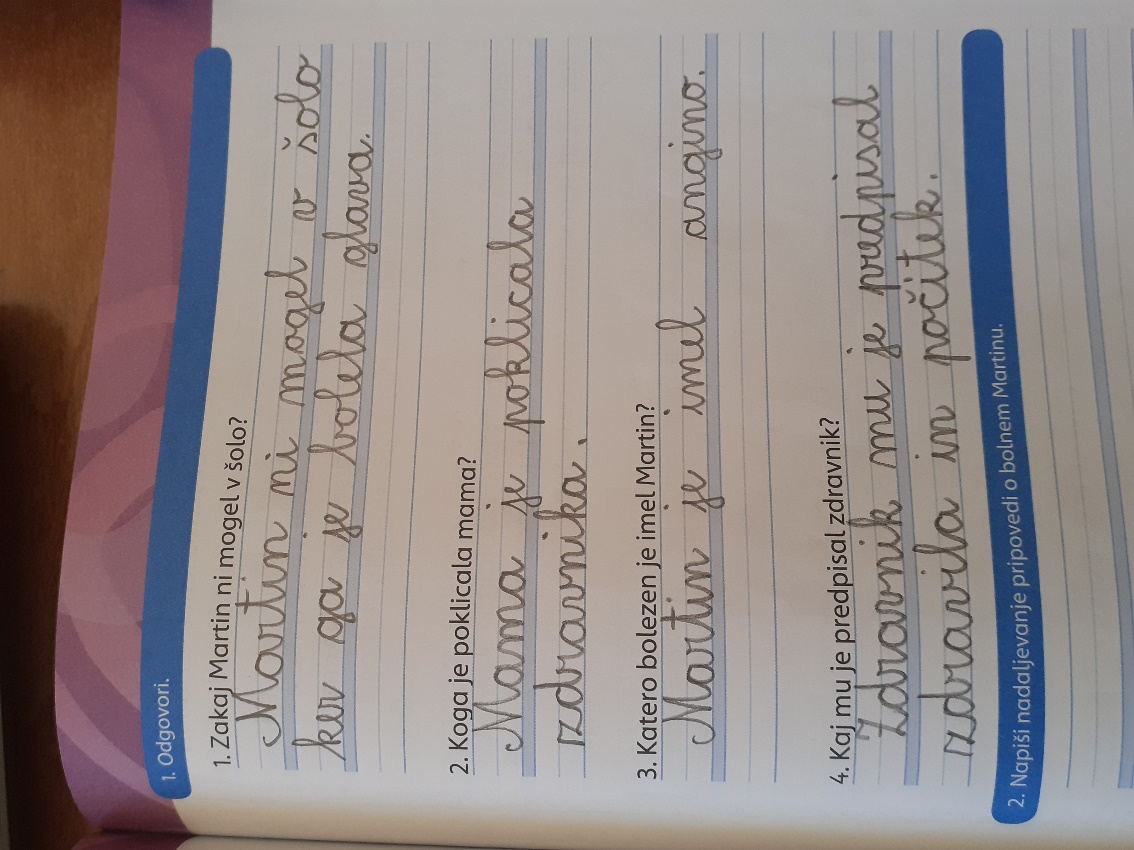 1. Odgovori.
1. Zakaj Martin ni mogel v šolo?
Martin ni mogel v šolo
ker ga je bolela glava.
2. Koga je poklicala mama?
Mama je poklicala
zdravnika.
3. Katero bolezen je imel Martin?
Martin je imel angino.
4. Kaj mu je predpisal zdravnik?
Zdravnik mu je predpisal
zdravila in počitek.
2. Napiši nadaljevanje pripovedi o bolnem Martinu.